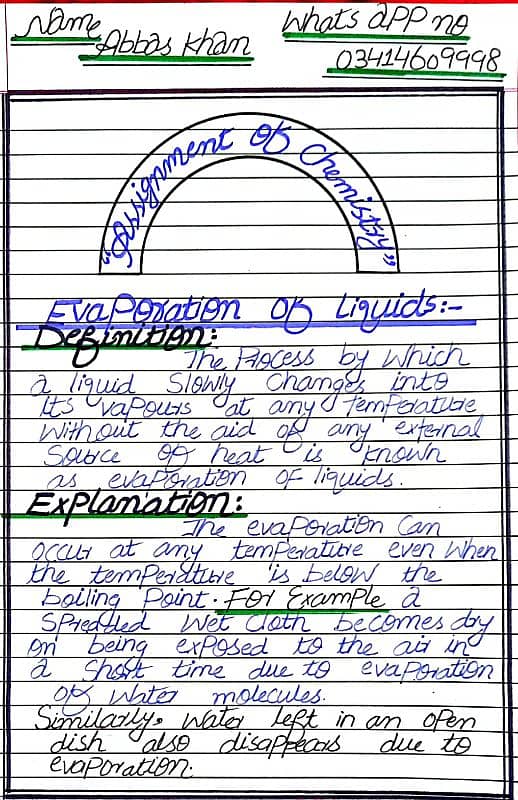 Name
Abbas Khan
Whats aPP no
03414609998
"Assignment of Chemistry"
Evaporation of Liquids:-
Definition:
The Process by Which
a liquid Slowly Changes into
Its vapours at any temperature
Without the aid of any external
Source of heat is known
as evaporation of liquids.
Explanation:
The evaporation Can
occur at any temperature even When
the temperature is below the
boiling Point. For Example a
Spreaded Wet Cloth becomes dry
on being exposed to the air in
a short time due to evaporation
of Water molecules.
Similarly, Water left in an open
dish also disappears due to
evaporation.